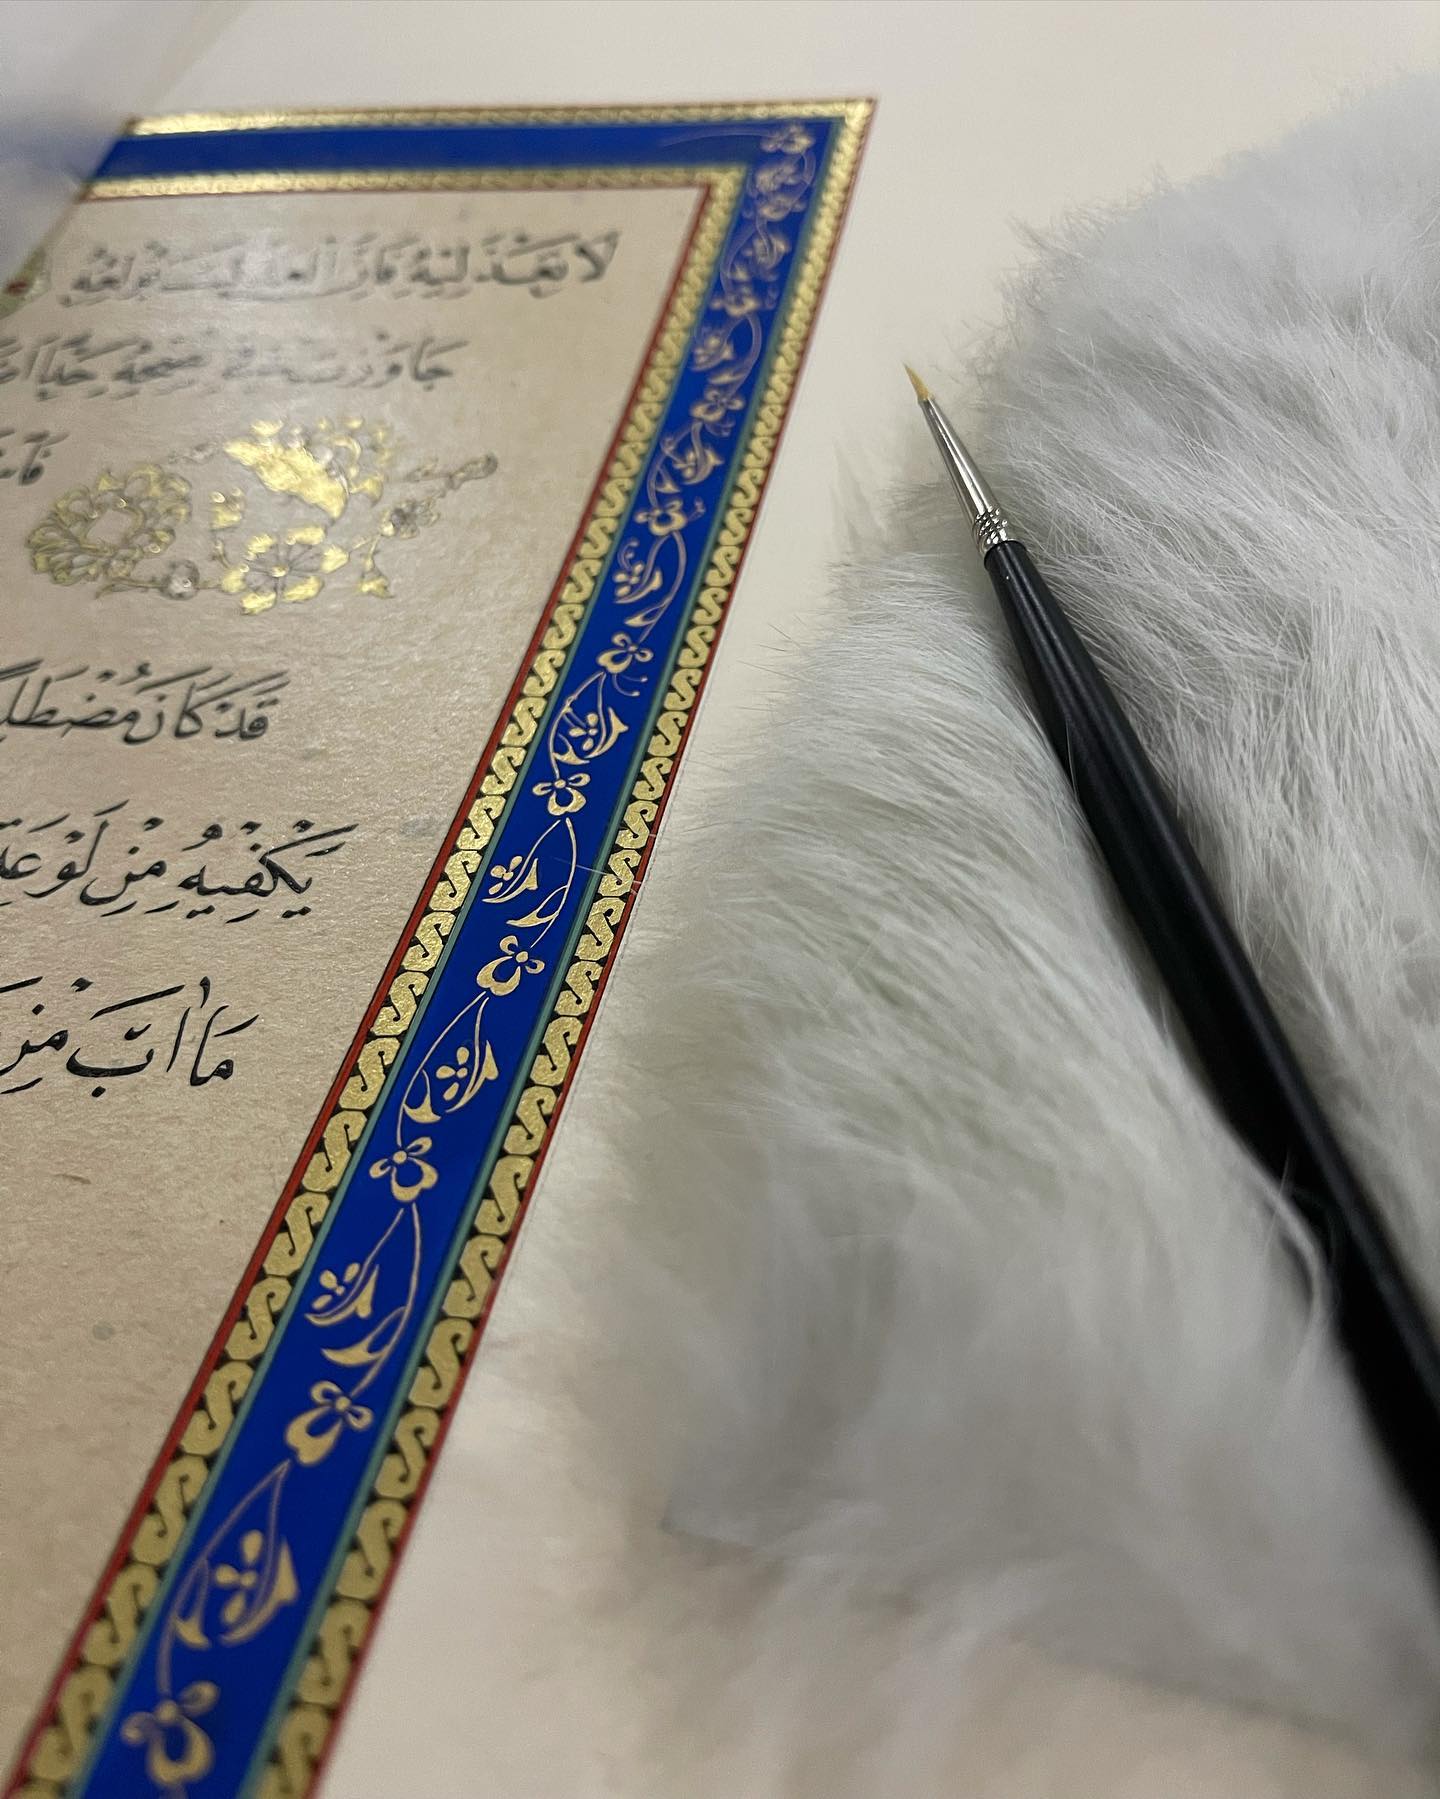 لَا تَعْذَلِيهِ فَإِنَّ الْعَذْلَ يُولِعُهُ
جَاوَزْتِ فِي نُصْحِهِ حَدًّا
قَدْ كَانَ مُضْطَلِ
يَكْفِيهِ مِنْ لَوْعَةِ
مَا اٰبَ مِنْ